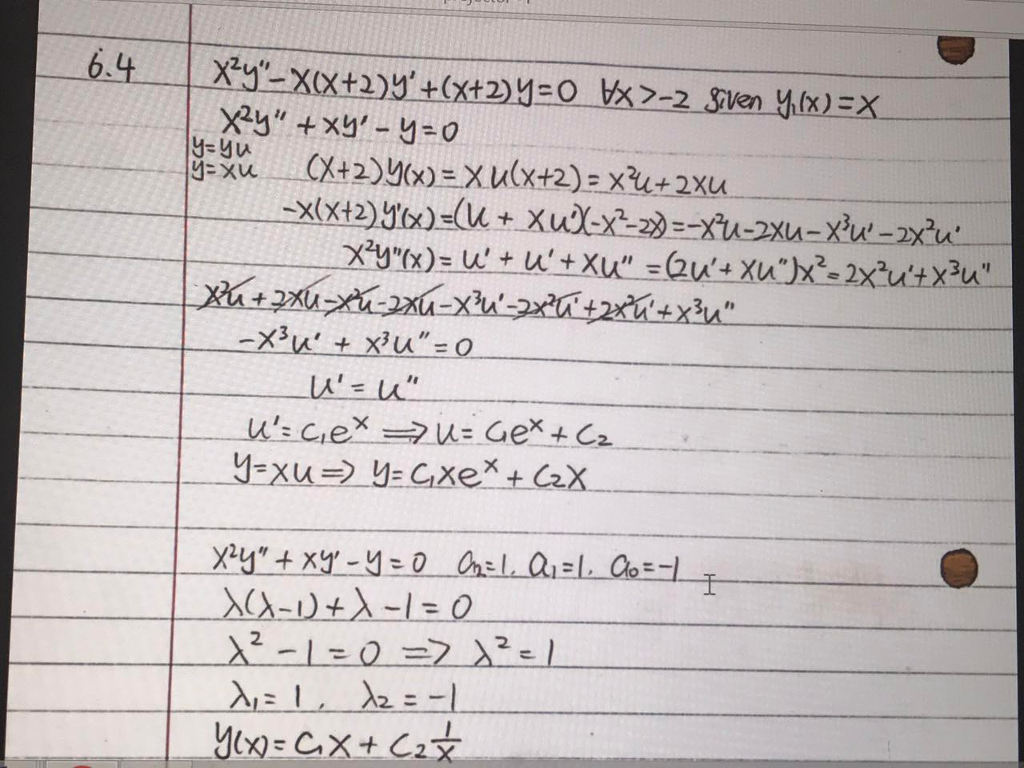 6.4 x²y" - x(x+2)y' + (x+2)y = 0 ∀x > -2 given y₁(x) = x
x²y" + xy' - y = 0
y = yu
y = xu (x+2)y(x) = xu(x+2) = x²u + 2xu
-x(x+2)y'(x) = (u + xu')(-x²-2x) = -x²u - 2xu - x³u' - 2x²u'
x²y"(x) = u' + u' + xu" = (2u' + xu")x² = 2x²u' + x³u"
x²u + 2xu - x²u - 2xu - x³u' - 2x²u' + 2x²u' + x³u"
-x³u' + x³u" = 0
u' = u"
u' = c₁eˣ ⟹ u = c₁eˣ + c₂
y = xu ⟹ y = c₁xeˣ + c₂x
x²y" + xy' - y = 0 a₂=1, a₁=1, a₀=-1
λ(λ-1) + λ - 1 = 0
λ² - 1 = 0 ⟹ λ² = 1
λ₁ = 1, λ₂ = -1
y(x) = c₁x + c₂ 1/x